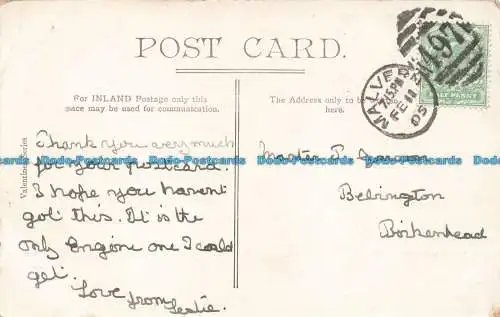 POST CARD.
For INLAND Postage only this
space may be used for communication.
The Address only to be
here.
MALVERN
7.15 PM
FE 11
05
497
HALF PENNY
Valentine's Series
Thank you very much
for your postcard.
I hope you havent
got this. It is the
only Engine one I could
get.
Love from
Leslie.
Master P.
Bebington
Birkenhead
Postcards Postcards Postcards Postcards Postcards Postcards